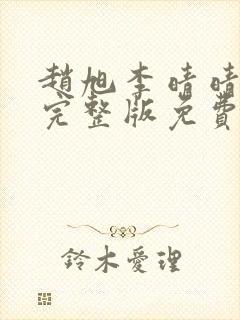 趙旭李晴晴
完整版免費
鈴木愛理